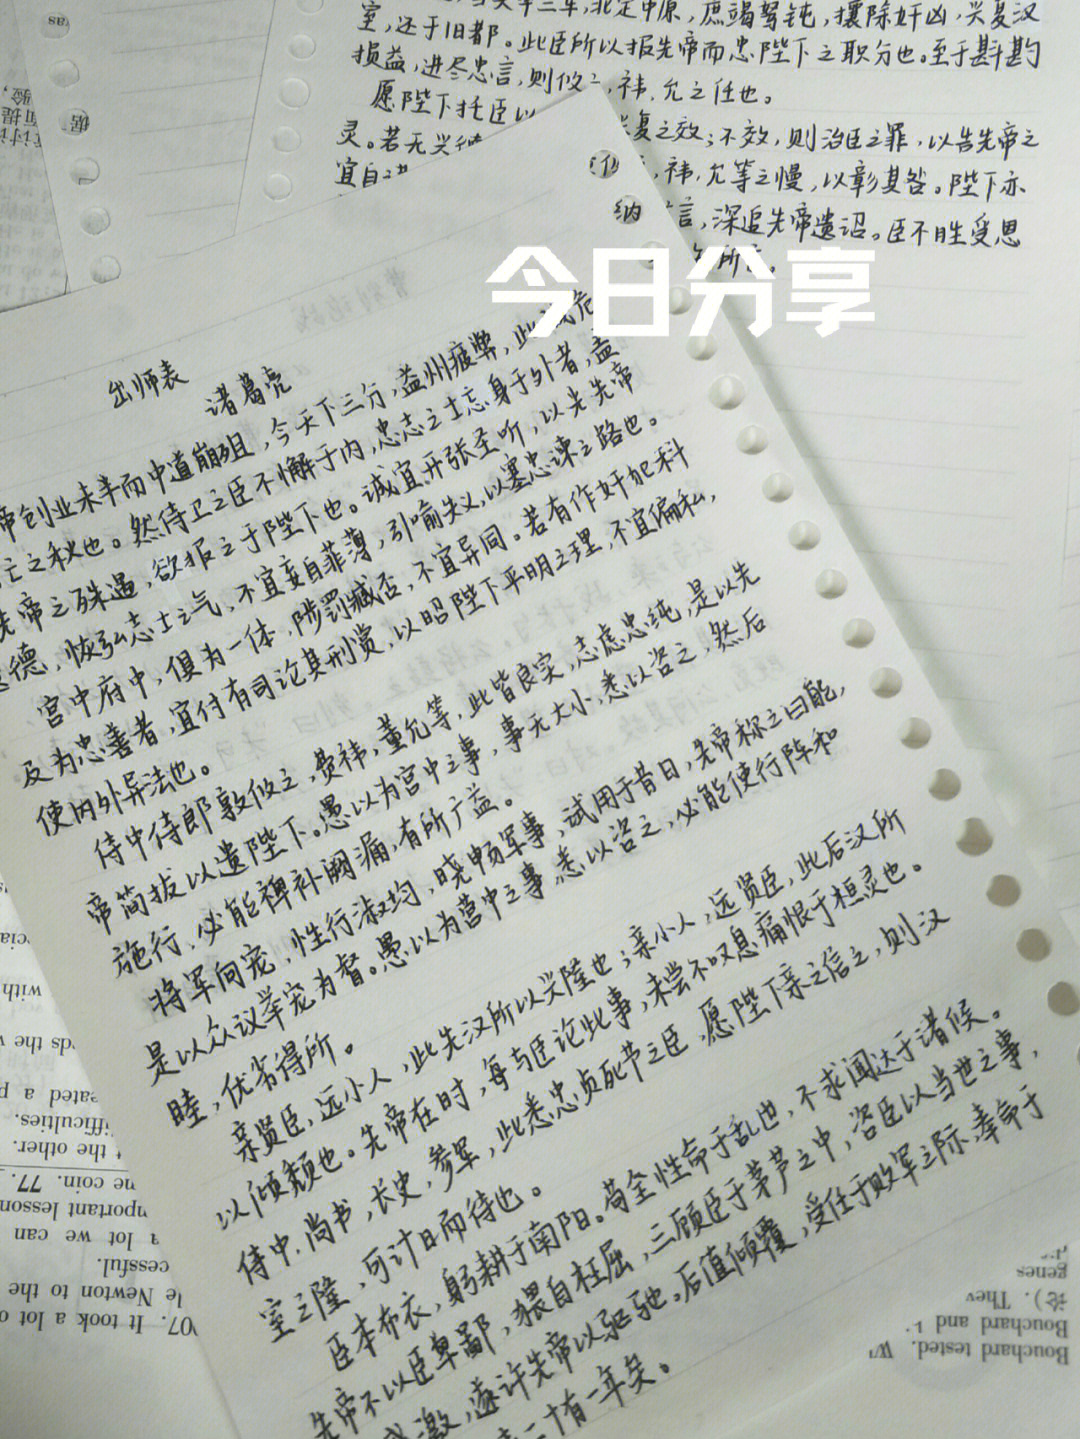 室,还于旧都。此臣所以报先帝而忠陛下之职分也。至于斟酌
损益,进尽忠言,则攸之,祎,允之任也。
愿陛下托臣以 兴复之效;不效,则治臣之罪,以告先帝之
灵。若无兴德 ,祎,允等之慢,以彰其咎。陛下亦
宜自 纳 言,深追先帝遗诏。臣不胜受恩
今日分享
出师表
诸葛亮
帝创业未半而中道崩殂,今天下三分,益州疲弊,此诚危
亡之秋也。然侍卫之臣不懈于内,忠志之士忘身于外者,盖
先帝之殊遇,欲报之于陛下也。诚宜开张圣听,以光先帝
德,恢弘志士之气,不宜妄自菲薄,引喻失义,以塞忠谏之路也。
宫中府中,俱为一体,陟罚臧否,不宜异同。若有作奸犯科
及为忠善者,宜付有司论其刑赏,以昭陛下平明之理,不宜偏私,
使内外异法也。
侍中侍郎郭攸之,费祎,董允等,此皆良实,志虑忠纯,是以先
帝简拔以遗陛下。愚以为宫中之事,事无大小,悉以咨之,然后
施行,必能裨补阙漏,有所广益。
将军向宠,性行淑均,晓畅军事,试用于昔日,先帝称之曰能,
是以众议举宠为督。愚以为营中之事,悉以咨之,必能使行阵和
睦,优劣得所。
亲贤臣,远小人,此先汉所以兴隆也;亲小人,远贤臣,此后汉所
以倾颓也。先帝在时,每与臣论此事,未尝不叹息痛恨于桓灵也。
侍中,尚书,长史,参军,此悉忠贞死节之臣,愿陛下亲之信之,则汉
室之隆,可计日而待也。
臣本布衣,躬耕于南阳。苟全性命于乱世,不求闻达于诸候。
先帝不以臣卑鄙,猥自枉屈,三顾臣于茅芦之中,咨臣以当世之事,
感激,遂许先帝以驱驰。后值倾覆,受任于败军之际,奉命于
二十有一年矣。
ds the
eated a p
ifficulties.
t the other.
ne coin. 77.
mportant lesson
a lot we can
cessful.
le Newton to the
07. It took a lot o
Bouchard tested.
Bouchard and
论). They
genes